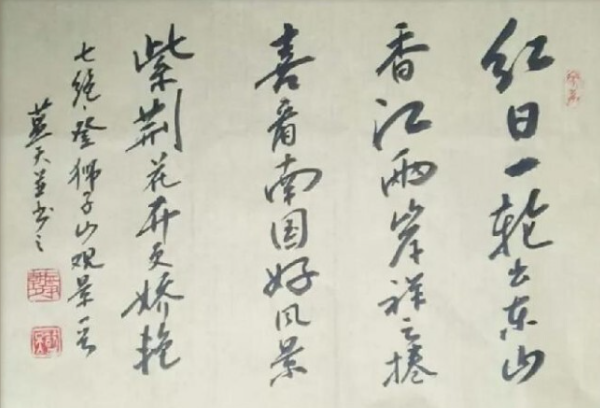 红日一轮出东山
香江两岸祥云捲
喜看南国好风景
紫荆花开更娇艳
七绝·登狮子山观景一首
天並书之